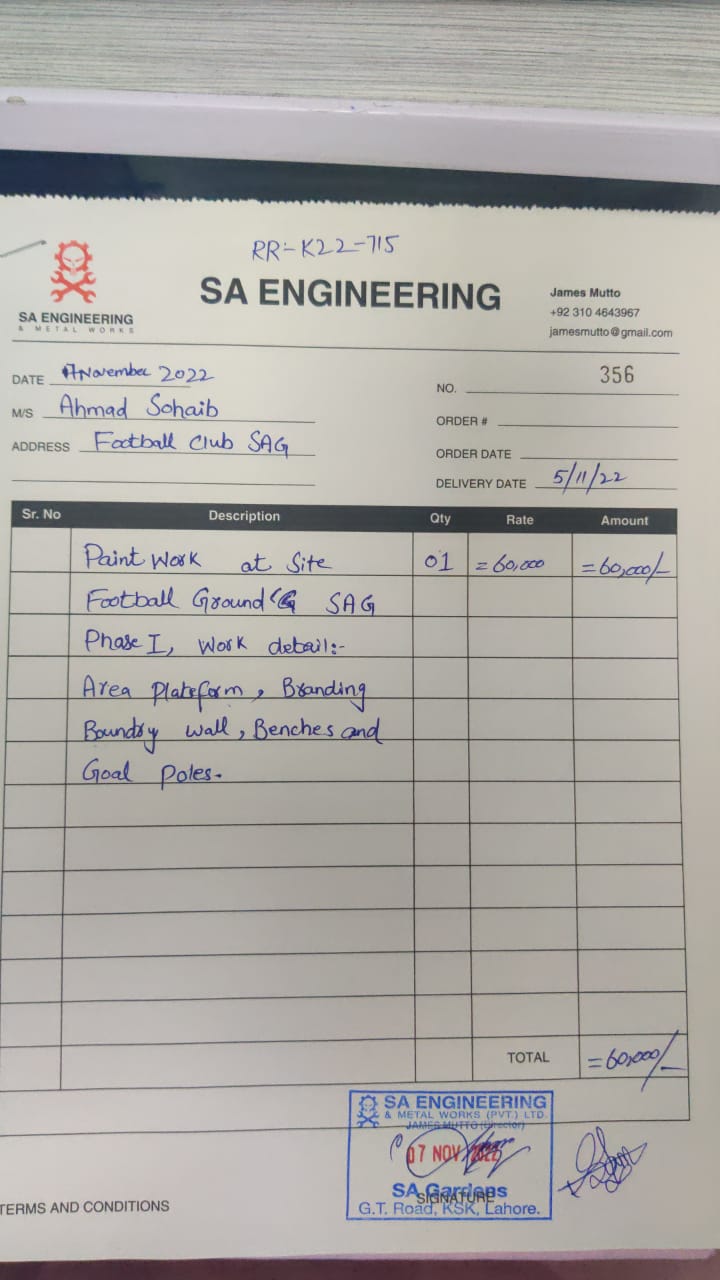 RR:- K22-715
SA ENGINEERING
& METAL WORKS
SA ENGINEERING
James Mutto
+92 310 4643967
jamesmutto@gmail.com
DATE November 2022
M/S Ahmad Sohaib
ADDRESS Football Club SAG
NO. 356
ORDER #
ORDER DATE
DELIVERY DATE 5/11/22
Sr. No Description Qty Rate Amount
Paint Work at Site 01 =60,000 =60,000/-
Football Ground SAG
Phase I, Work detail:-
Area Plateform, Branding
Boundry wall, Benches and
Goal Poles.
TOTAL =60,000/-
SA ENGINEERING
& METAL WORKS (PVT.) LTD.
JAMES MUTTO (Director)
07 NOV 2022
SA Gardens
SIGNATURE
G.T. Road, KSK, Lahore.
TERMS AND CONDITIONS